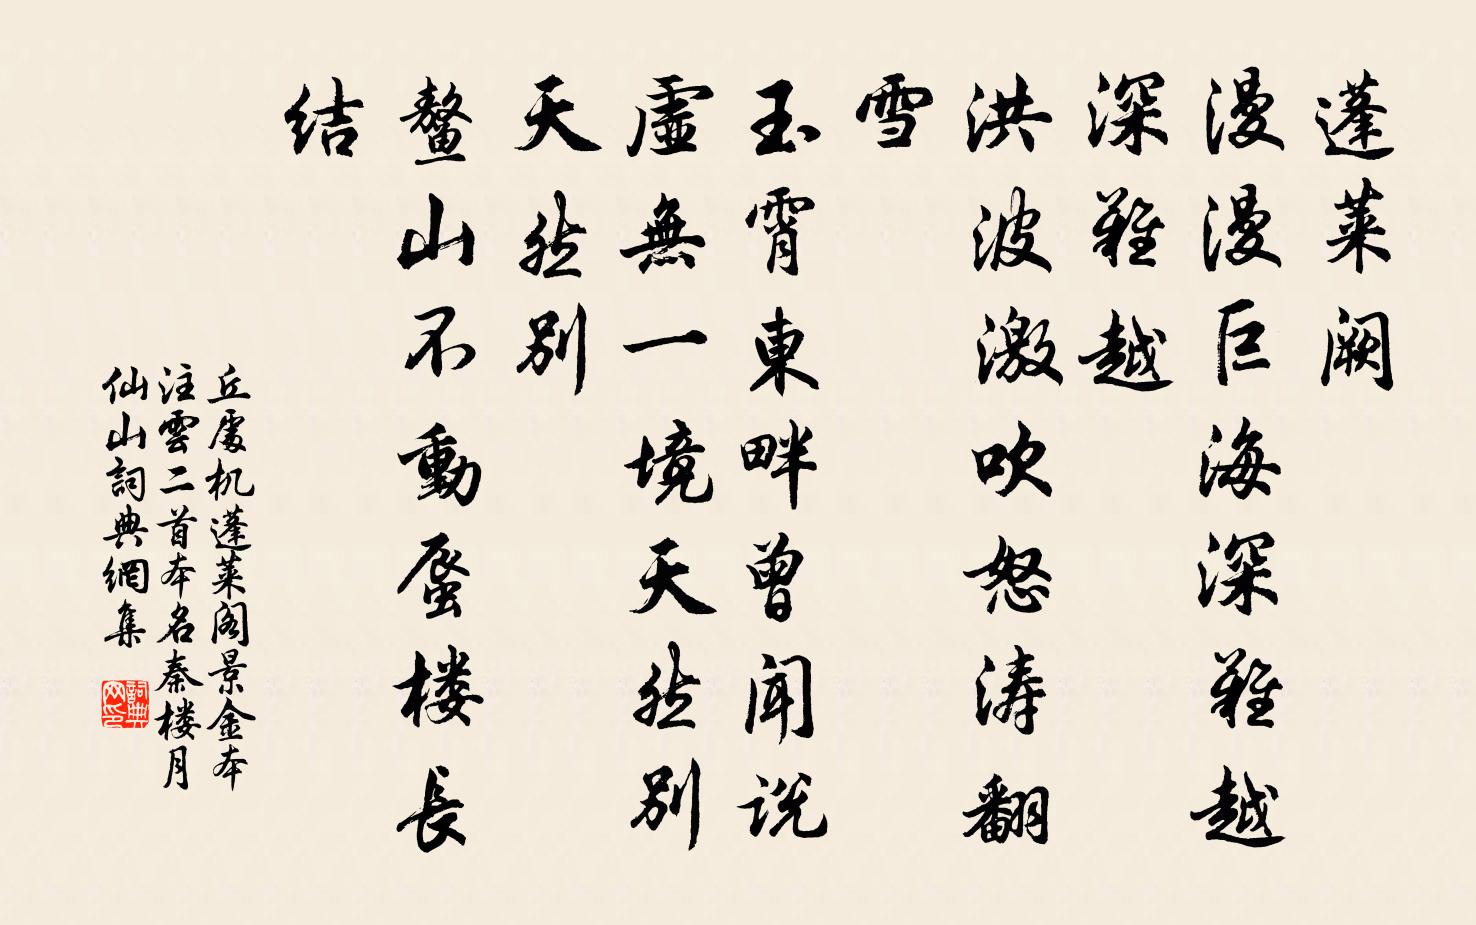 蓬莱阙
漫漫巨海深難越
深難越
洪波激吹怒涛翻
雪
玉霄東畔曾闻说
虛無一境天然别
天然别
鳌山不動蜃楼長
结
丘處机蓬莱阁景金本
注雲二首本名秦楼月
仙山詞典網集
詞典网印